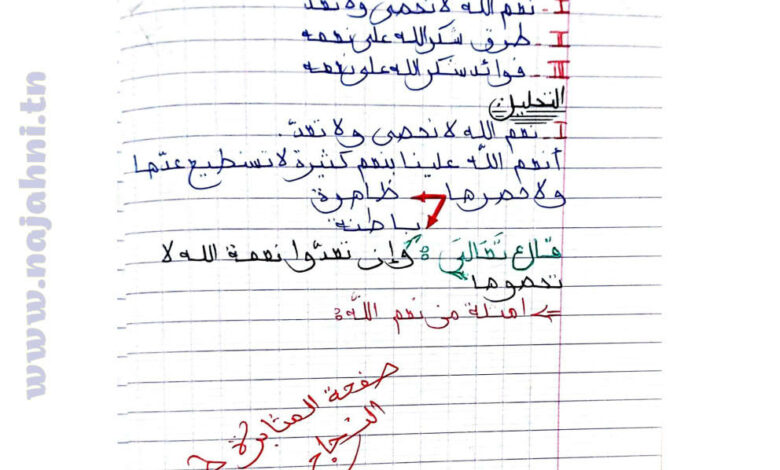 I - نعم الله لا تحصى ولا تعد
II - طرق شكر الله على نعمه
III - فوائد شكر الله على نعمه
التحليل:
I - نعم الله لا تحصى ولا تعدّ.
أنعم اللّه علينا بنعم كثيرة لا نستطيع عدّها
ولا حصرها
ظاهرة
باطنة
قال تعالى: "وإن تعدّوا نعمة الله لا
تحصوها"
=> أمثلة من نعم اللّه:
صفحة المثابرة
النجاح
www.najahni.tn